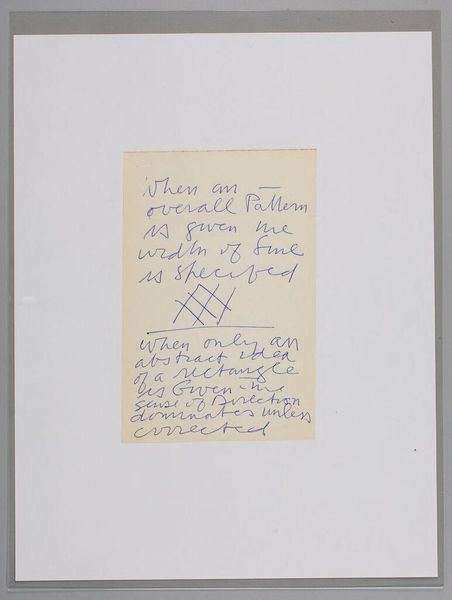 When an
overall Pattern
is given the
width of line
is specified
when only an
abstract idea
of a rectangle
is Given the
sense of Direction
dominates unless
corrected